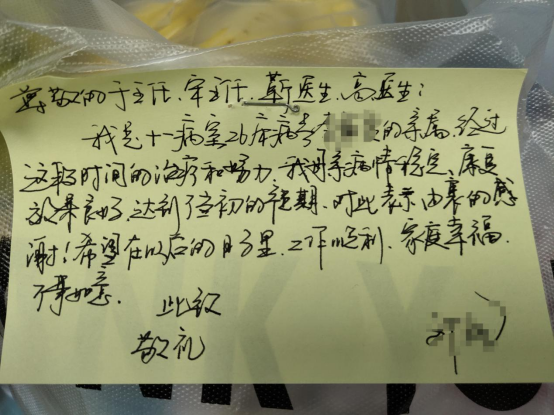 尊敬的于主任、宋主任、靳医生、高医生：
我是十一病室26床病号李的亲属，经过
这段时间的治疗和努力，我母亲病情稳定、康复
效果良好，达到了当初的预期，对此表示由衷的感
谢！希望在以后的日子里，工作顺利，家庭幸福，
万事如意。
此致
敬礼
NKY